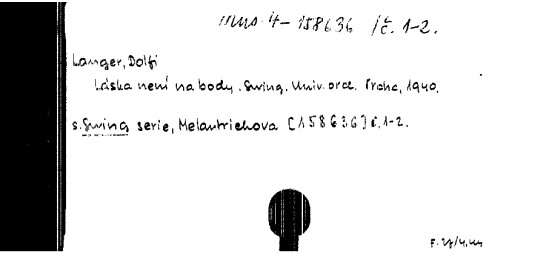 Mus 4-158636 /č. 1-2.
Langer, Dolfi
Láska není na body. Swing. Univ. orch. Praha, 1940.
s. Swing serie, Melantrichova [158636] č. 1-2.